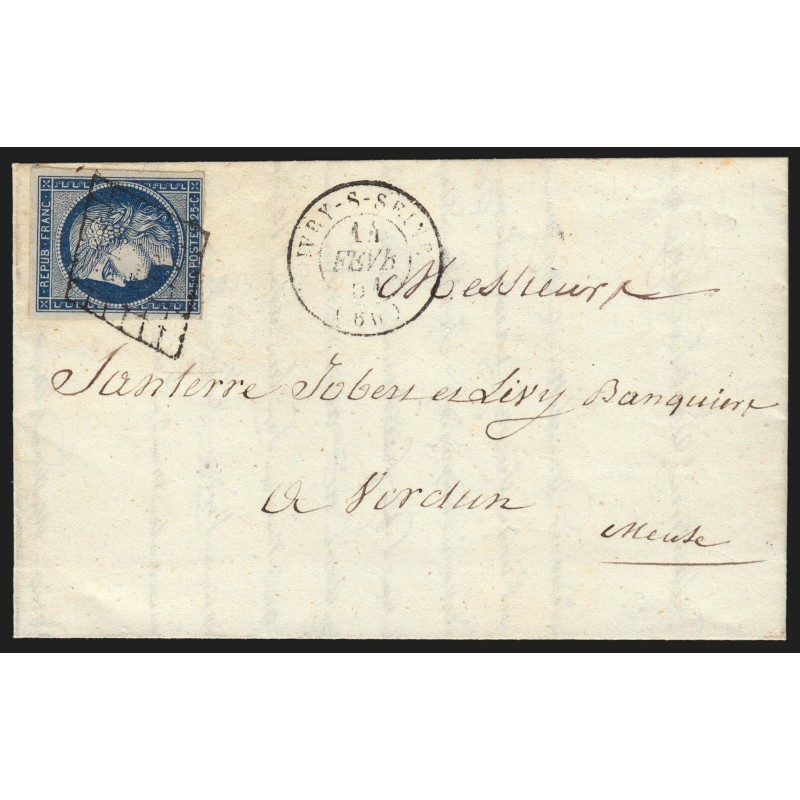 REPUB. FRANC.
25 C POSTES 25 C
IVRY-S-SEINE
11
FEVR
51
(60)
Messieurs
Santerre Jobert et Livy Banquiers
a Verdun
Meuse